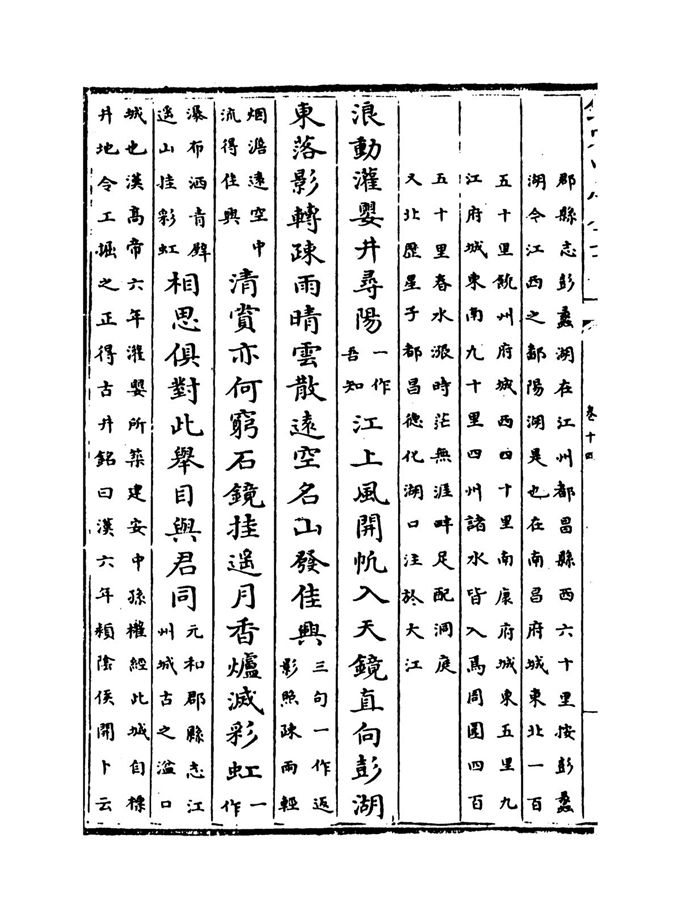 卷十四
郡縣志彭蠡湖在江州都昌縣西六十里按彭蠡
湖今江西之鄱陽湖是也在南昌府城東北一百
五十里饒州府城西四十里南康府城東五里九
江府城東南九十里四州諸水皆入焉周圍四百
五十里春水漲時茫無涯畔足配洞庭
又北歷星子都昌德化湖口注於大江
浪動灌嬰井尋陽一作吾知江上風開帆入天鏡直向彭湖
東落影轉疎雨晴雲散遠空名山發佳興三句一作返影照疎雨輕
烟澹遠空中流得佳興清賞亦何窮石鏡挂遥月香爐滅彩虹一作
瀑布洒青壁遥山挂彩虹相思俱對此舉目與君同元和郡縣志江州城古之湓口
城也漢高帝六年灌嬰所築建安中孫權經此城自標
井地令工掘之正得古井銘曰漢六年頴陰侯開卜云